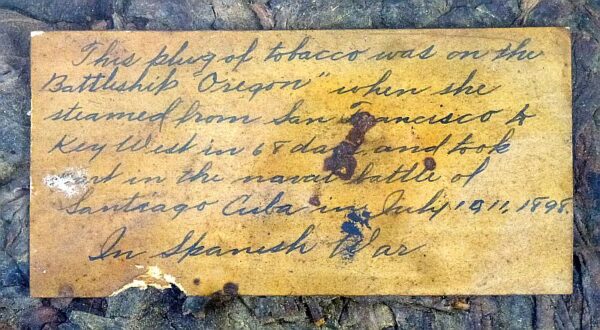 This plug of tobacco was on the
Battleship "Oregon" when she
steamed from San Francisco to
Key West in 68 days and took
part in the naval battle of
Santiago Cuba in July 10 11, 1898.
In Spanish War